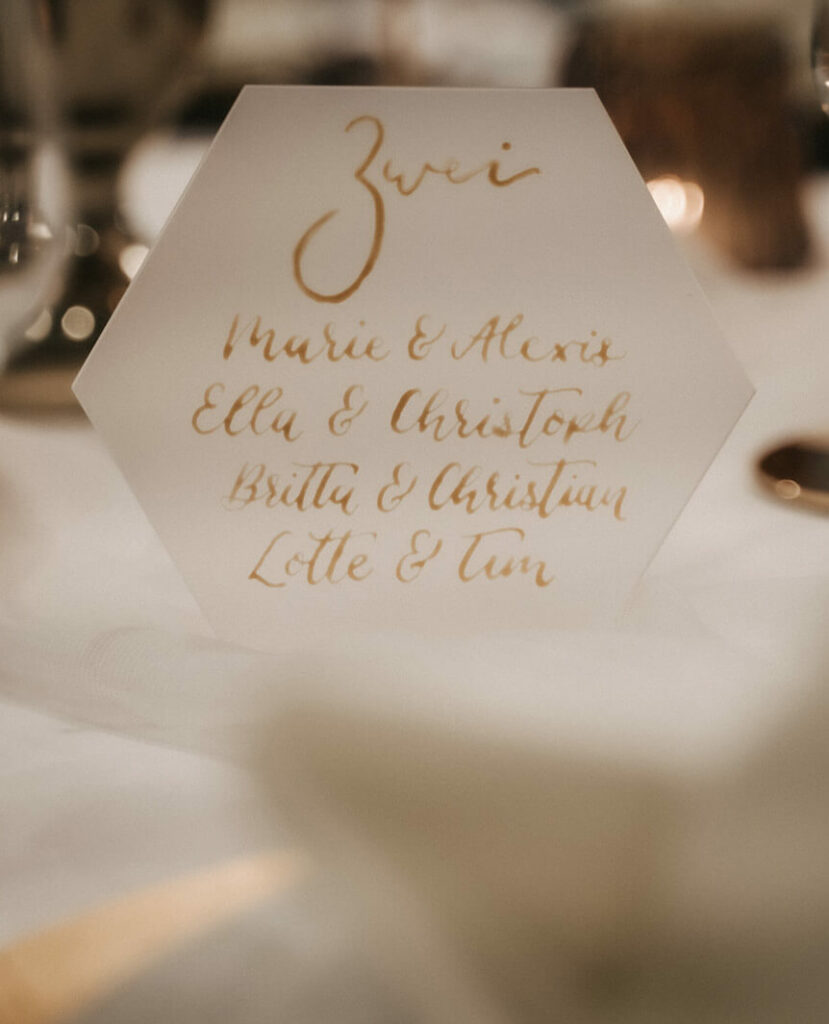 Zwei
Marie & Alexis
Ella & Christoph
Britta & Christian
Lotte & Tim